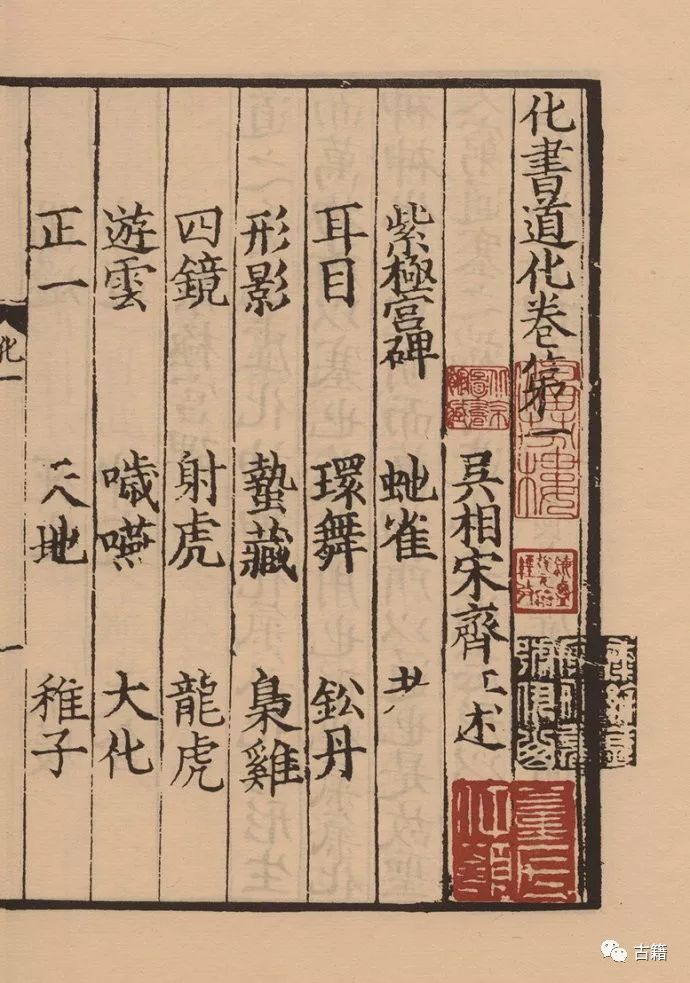 化書道化卷第一
吳相宋齊丘述
紫極宮碑　虵雀
耳目　環舞　鈆丹
形影　蟄藏　梟雞
四鏡　射虎　龍虎
遊雲　噦嚥　大化
正一　天地　稚子
化一
古籍